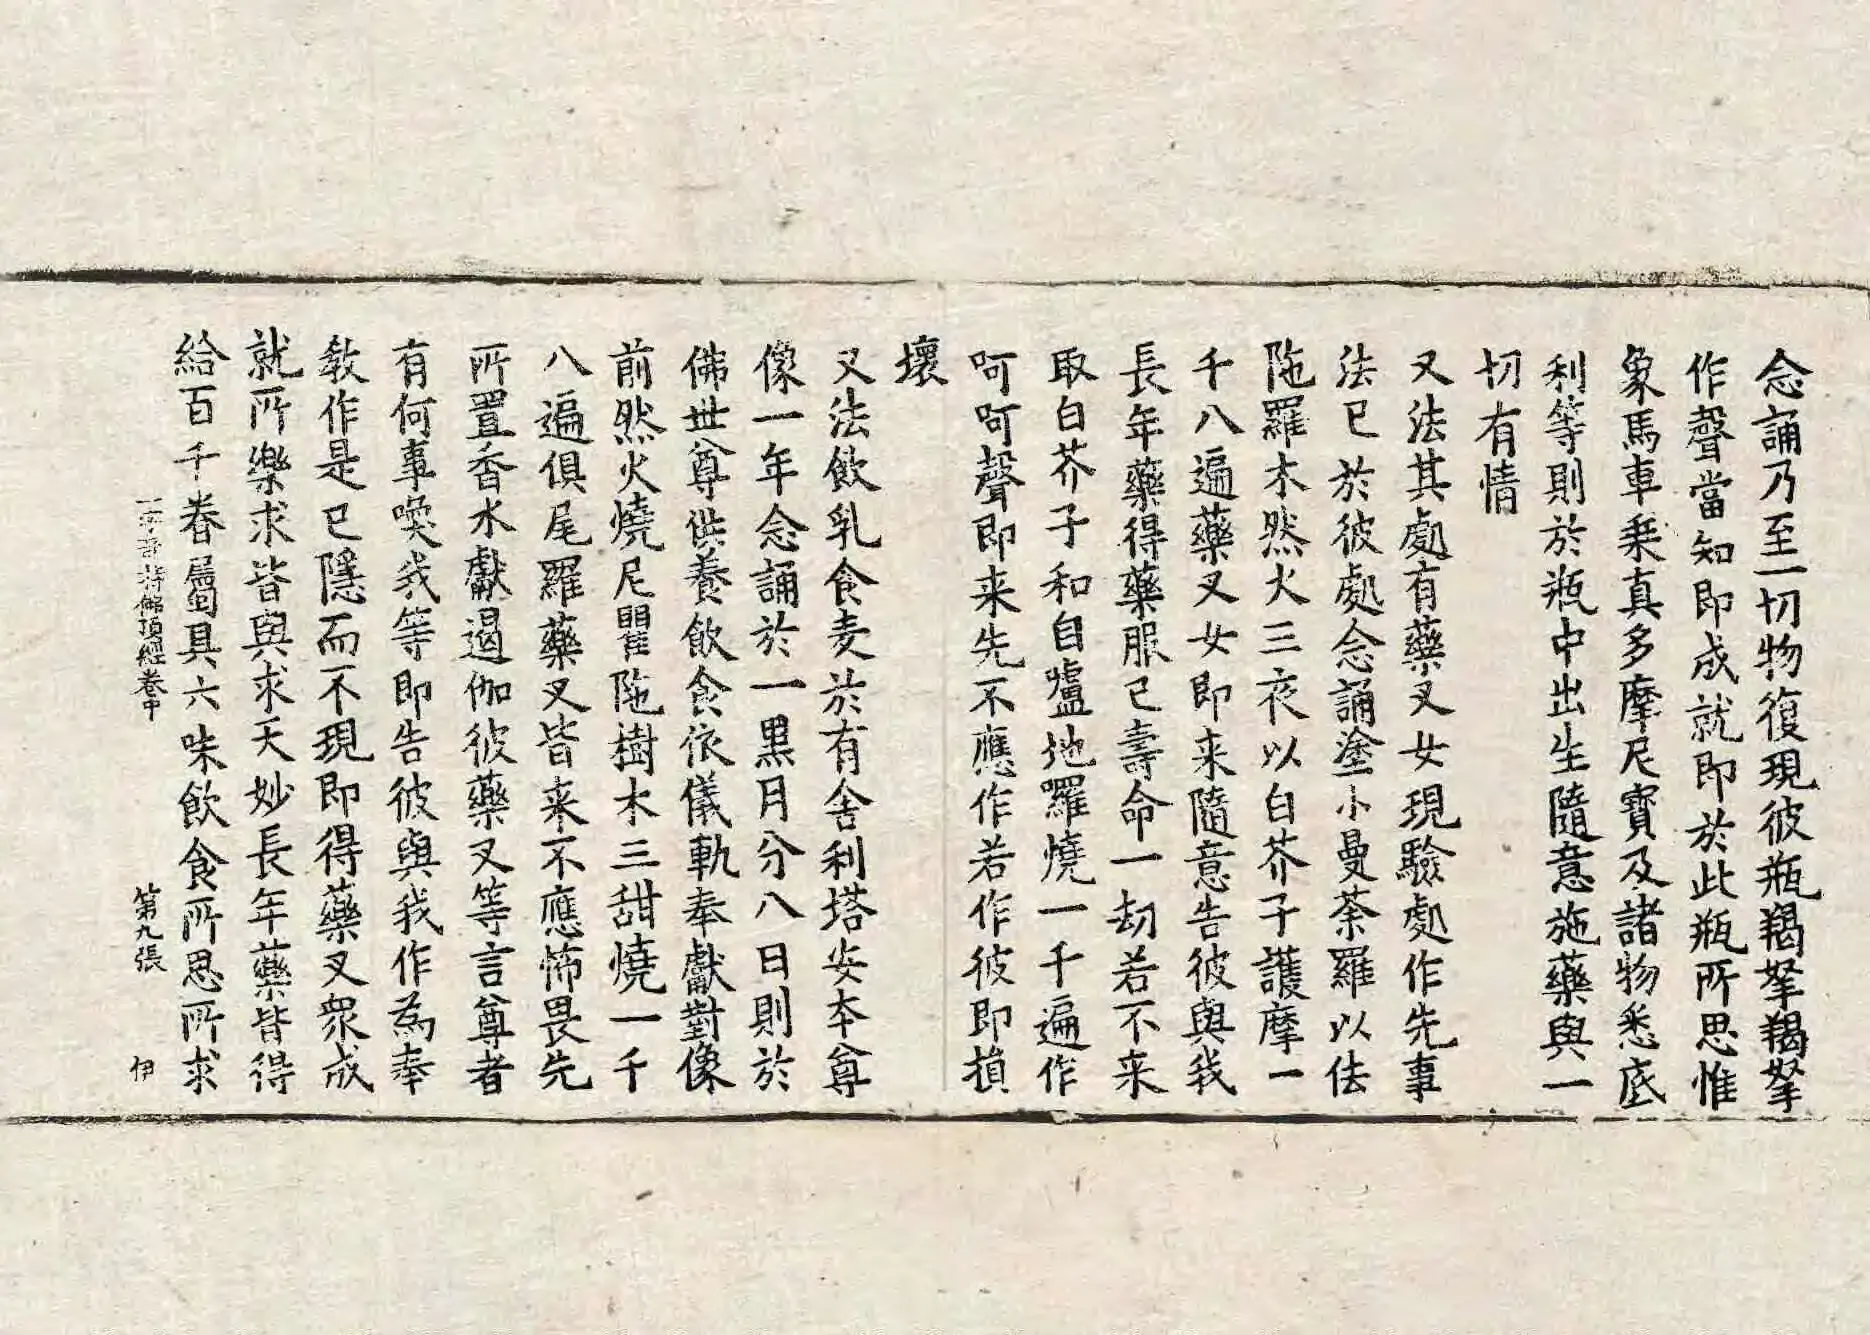 念誦乃至一切物復現彼瓶羯拏羯拏
作聲當知即成就即於此瓶所思惟
象馬車乗真多摩尼寳及諸物悉底
利等則於瓶中出生隨意施藥與一
切有情
又法其處有藥叉女現驗處作先事
法已於彼處念誦塗小曼荼羅以佉
陁羅木然火三夜以白芥子護摩一
千八遍藥叉女即来隨意告彼與我
長年藥得藥服已壽命一劫若不来
取白芥子和自嚧地囉燒一千遍作
呵呵聲即来先不應作若作彼即損
壞
又法飲乳食麦於有舎利塔安本尊
像一年念誦於一黒月分八日則於
佛世尊供養飲食依儀軌奉獻對像
前然火燒尼瞿陁樹木三甜燒一千
八遍俱尾羅藥叉皆来不應怖畏先
所置香水獻遏伽彼藥叉等言尊者
有何事喚我等即告彼與我作為奉
教作是已隱而不現即得藥叉衆成
就所樂求皆與求天妙長年藥皆得
給百千眷屬具六味飲食所思所求
一字奇特佛頂經卷中 第九張 伊